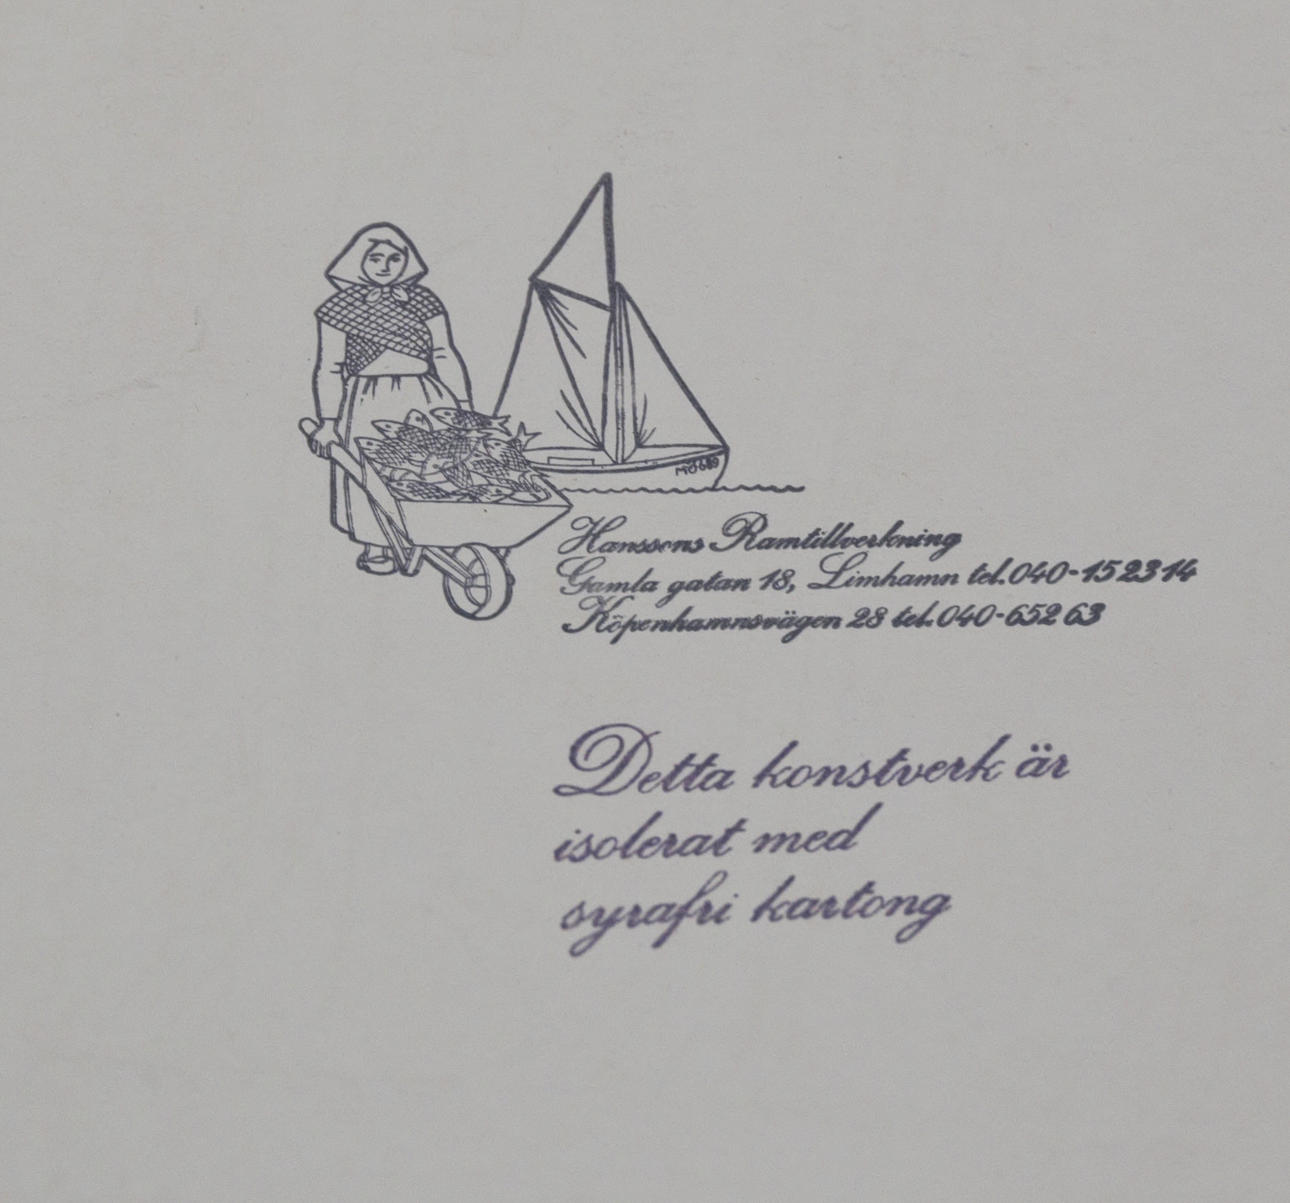 Hanssons Ramtillverkning
Gamla gatan 18, Limhamn tel.040-15 23 14
Köpenhamnsvägen 28 tel.040-652 63
Detta konstverk är
isolerat med
syrafri kartong